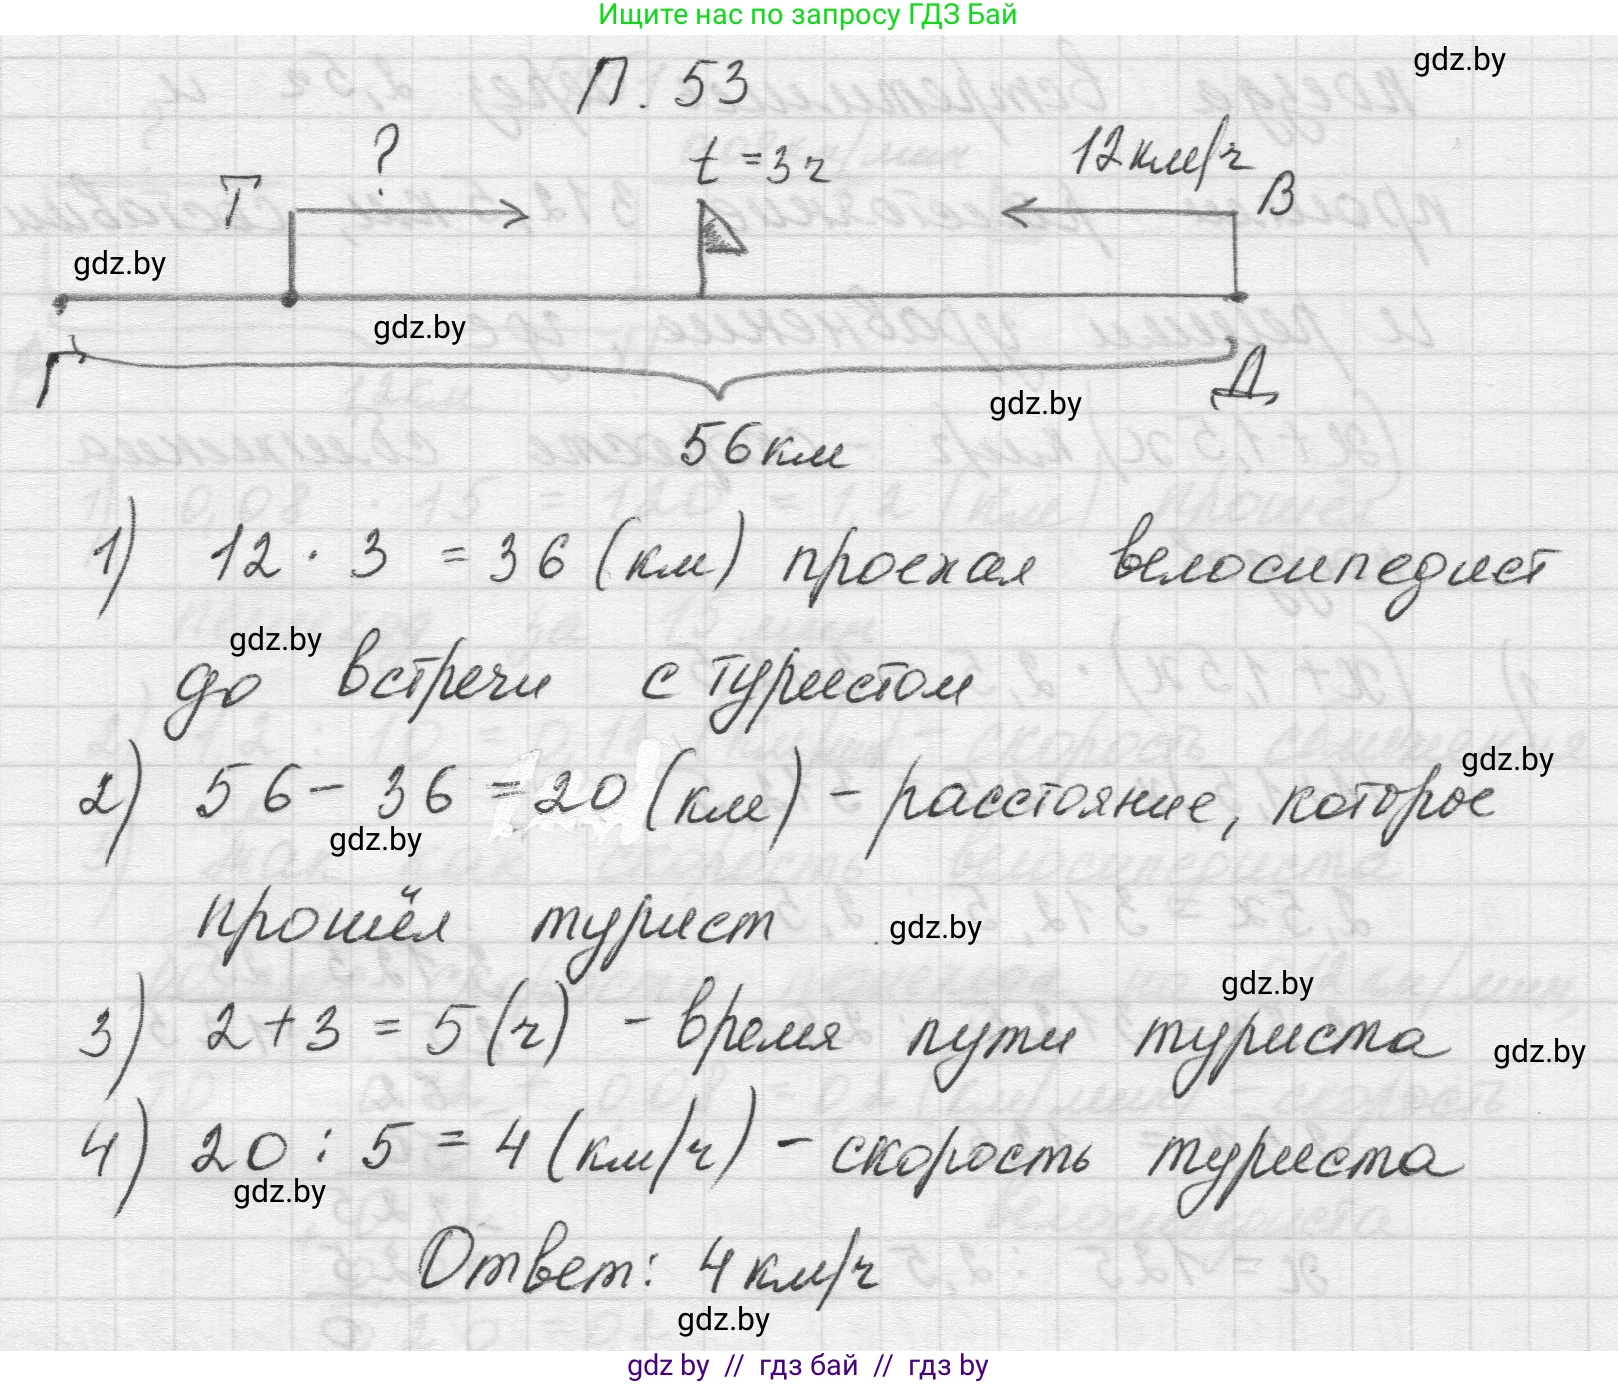 Ищите нас по запросу ГДЗ Бай
gdz.by
П. 53
?
t = 3 ч
12 км/ч
Т
В
gdz.by
gdz.by
Г
Д
gdz.by
56 км
1) 12 · 3 = 36 (км) проехал велосипедист
gdz.by
до встречи с туристом
gdz.by
2) 56 - 36 = 20 (км) - расстояние, которое
gdz.by
прошёл турист
gdz.by
gdz.by
3) 2 + 3 = 5 (ч) - время пути туриста
gdz.by
4) 20 : 5 = 4 (км/ч) - скорость туриста
gdz.by
Ответ: 4 км/ч
gdz.by
gdz by // гдз бай // гдз by